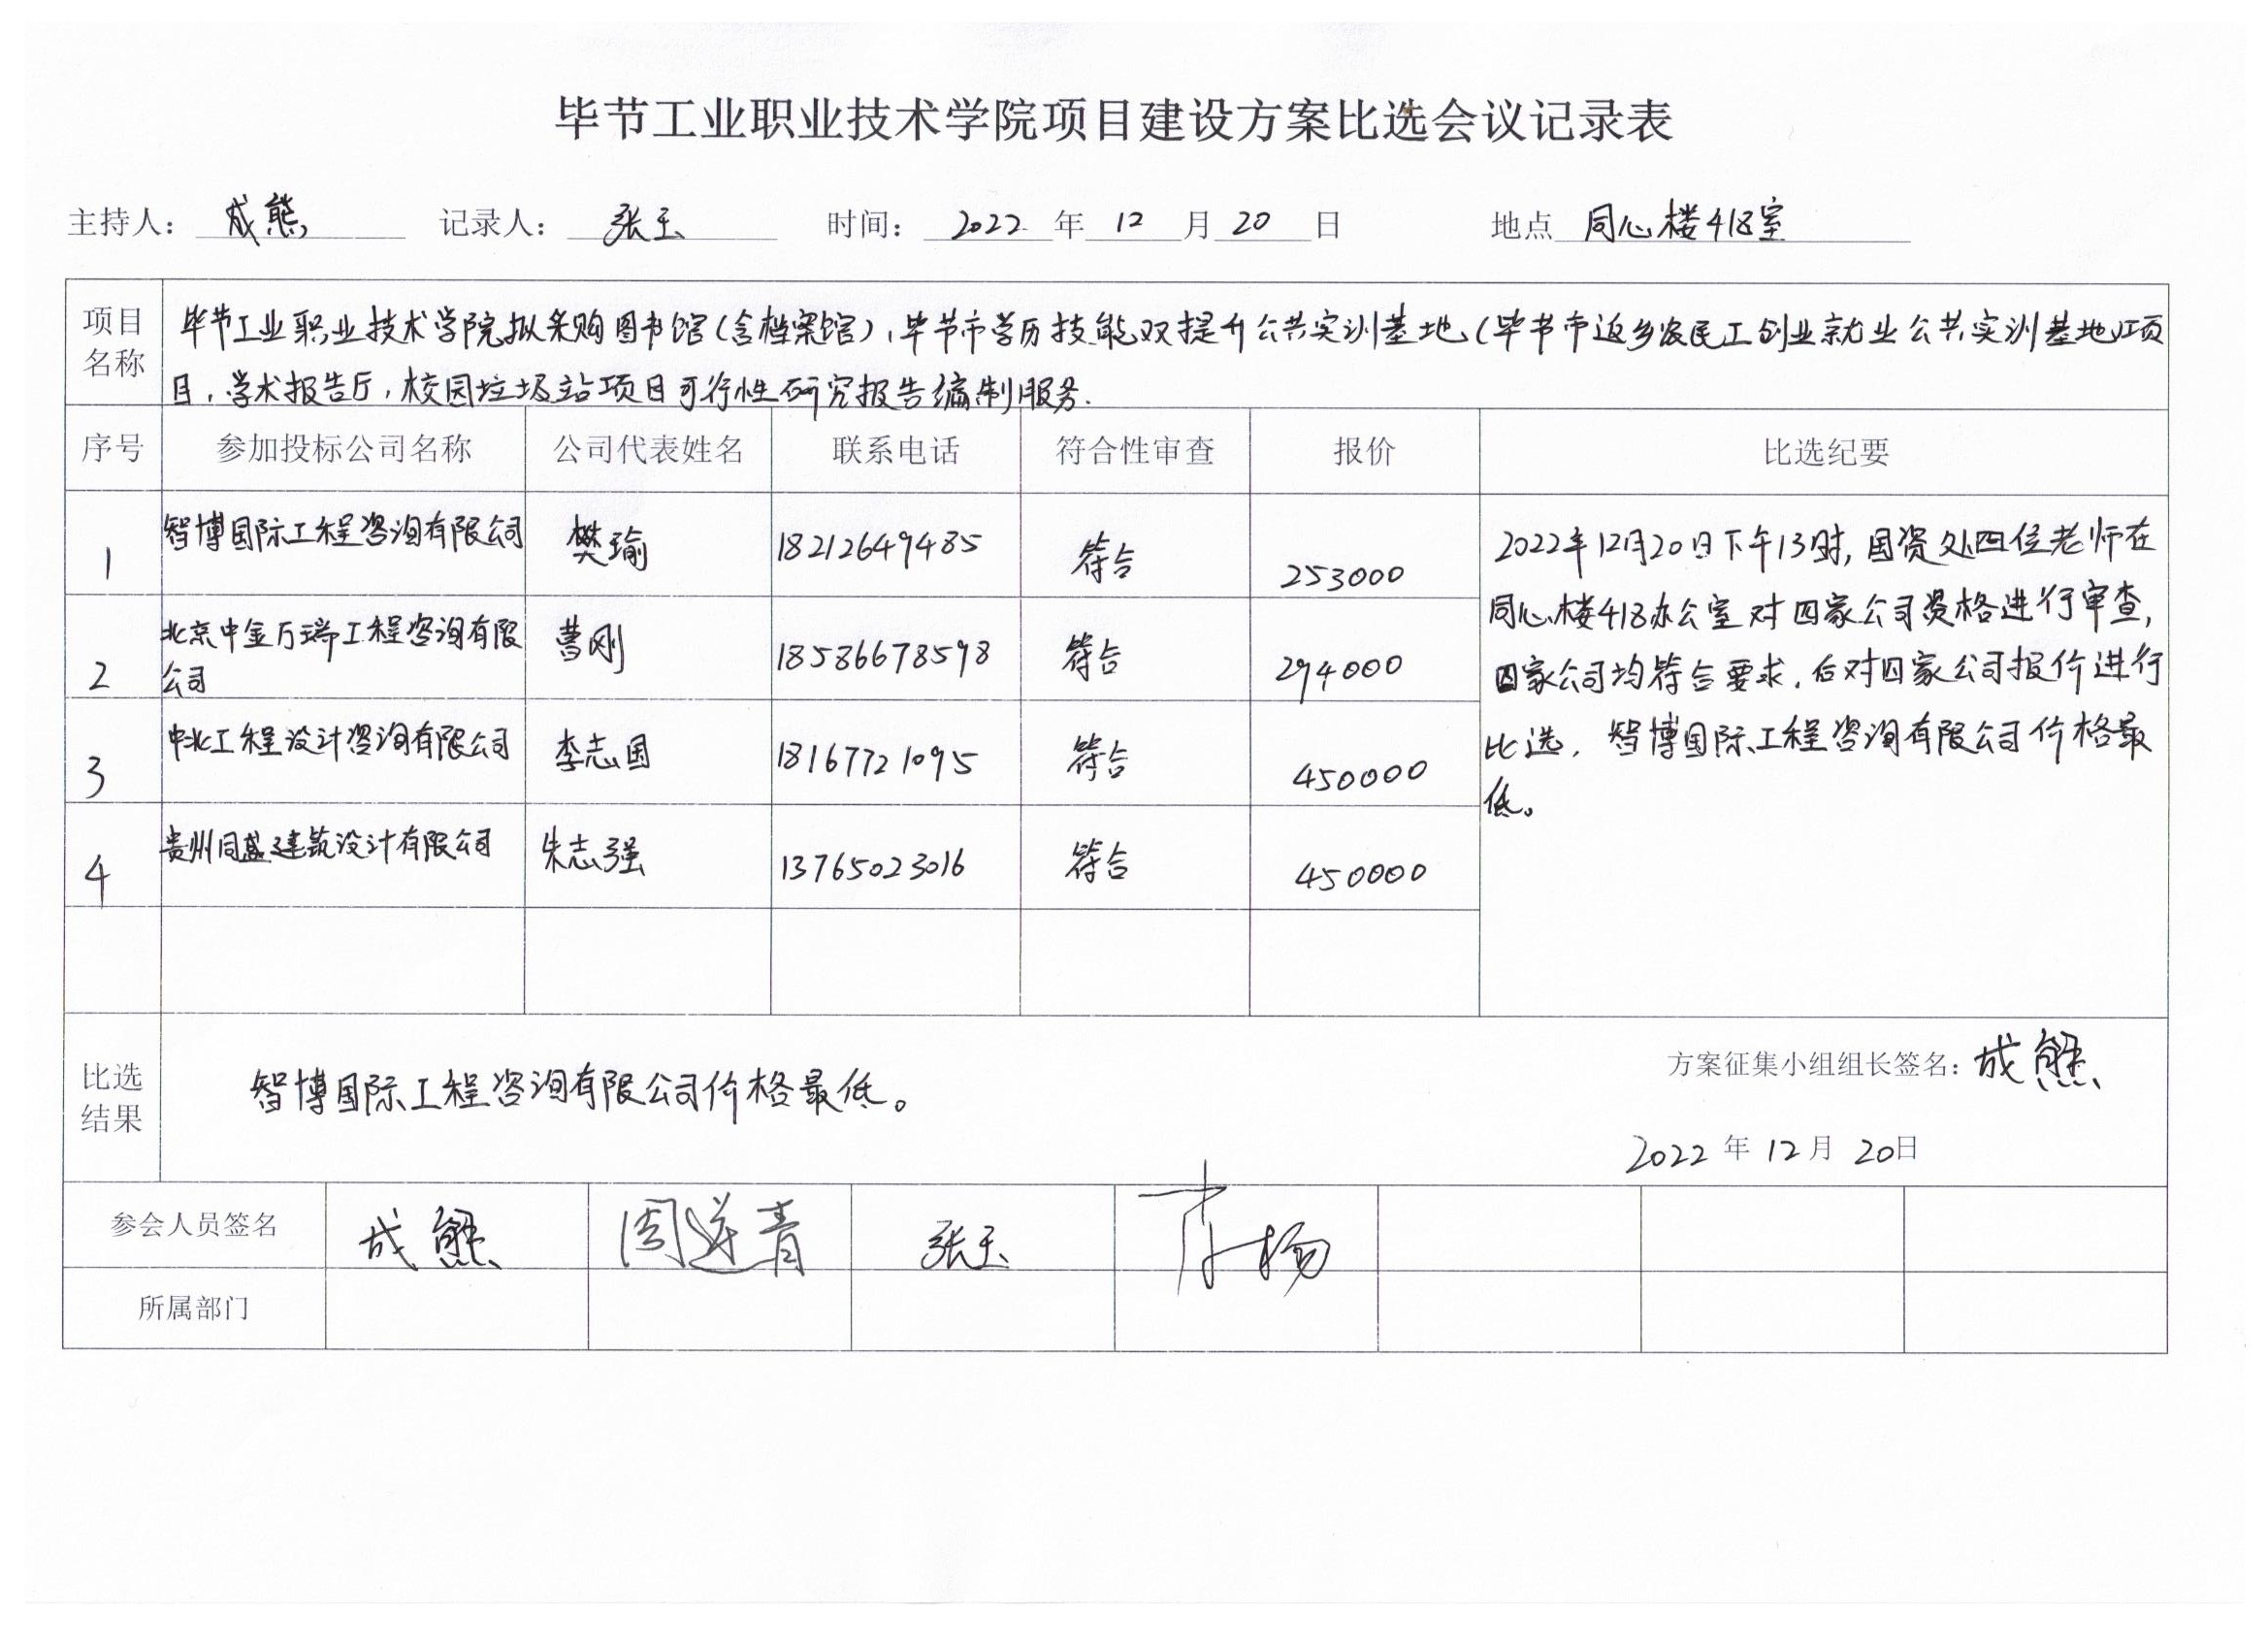 毕节工业职业技术学院项目建设方案比选会议记录表
主持人： 成熊 记录人： 张玉 时间： 2022 年 12 月 20 日 地点 同心楼418室
项目名称 毕节工业职业技术学院拟采购图书馆（含档案馆），毕节市学历技能双提升公共实训基地（毕节市返乡农民工创业就业公共实训基地）项
目，学术报告厅，校园垃圾站项目可行性研究报告编制服务.
序号 参加投标公司名称 公司代表姓名 联系电话 符合性审查 报价 比选纪要
1 智博国际工程咨询有限公司 樊瑜 18212649485 符合 253000
2 北京中金万瑞工程咨询有限公司 曹刚 18586678598 符合 294000
3 中北工程设计咨询有限公司 李志国 18167721095 符合 450000
4 贵州同盛建筑设计有限公司 朱志强 13765023016 符合 450000
2022年12月20日下午13时，国资处四位老师在
同心楼418办公室对四家公司资格进行审查，
四家公司均符合要求，后对四家公司报价进行
比选，智博国际工程咨询有限公司价格最
低。
比选结果 智博国际工程咨询有限公司价格最低。
方案征集小组组长签名：成熊
2022 年 12 月 20日
参会人员签名 成熊 周莲青 张玉
所属部门